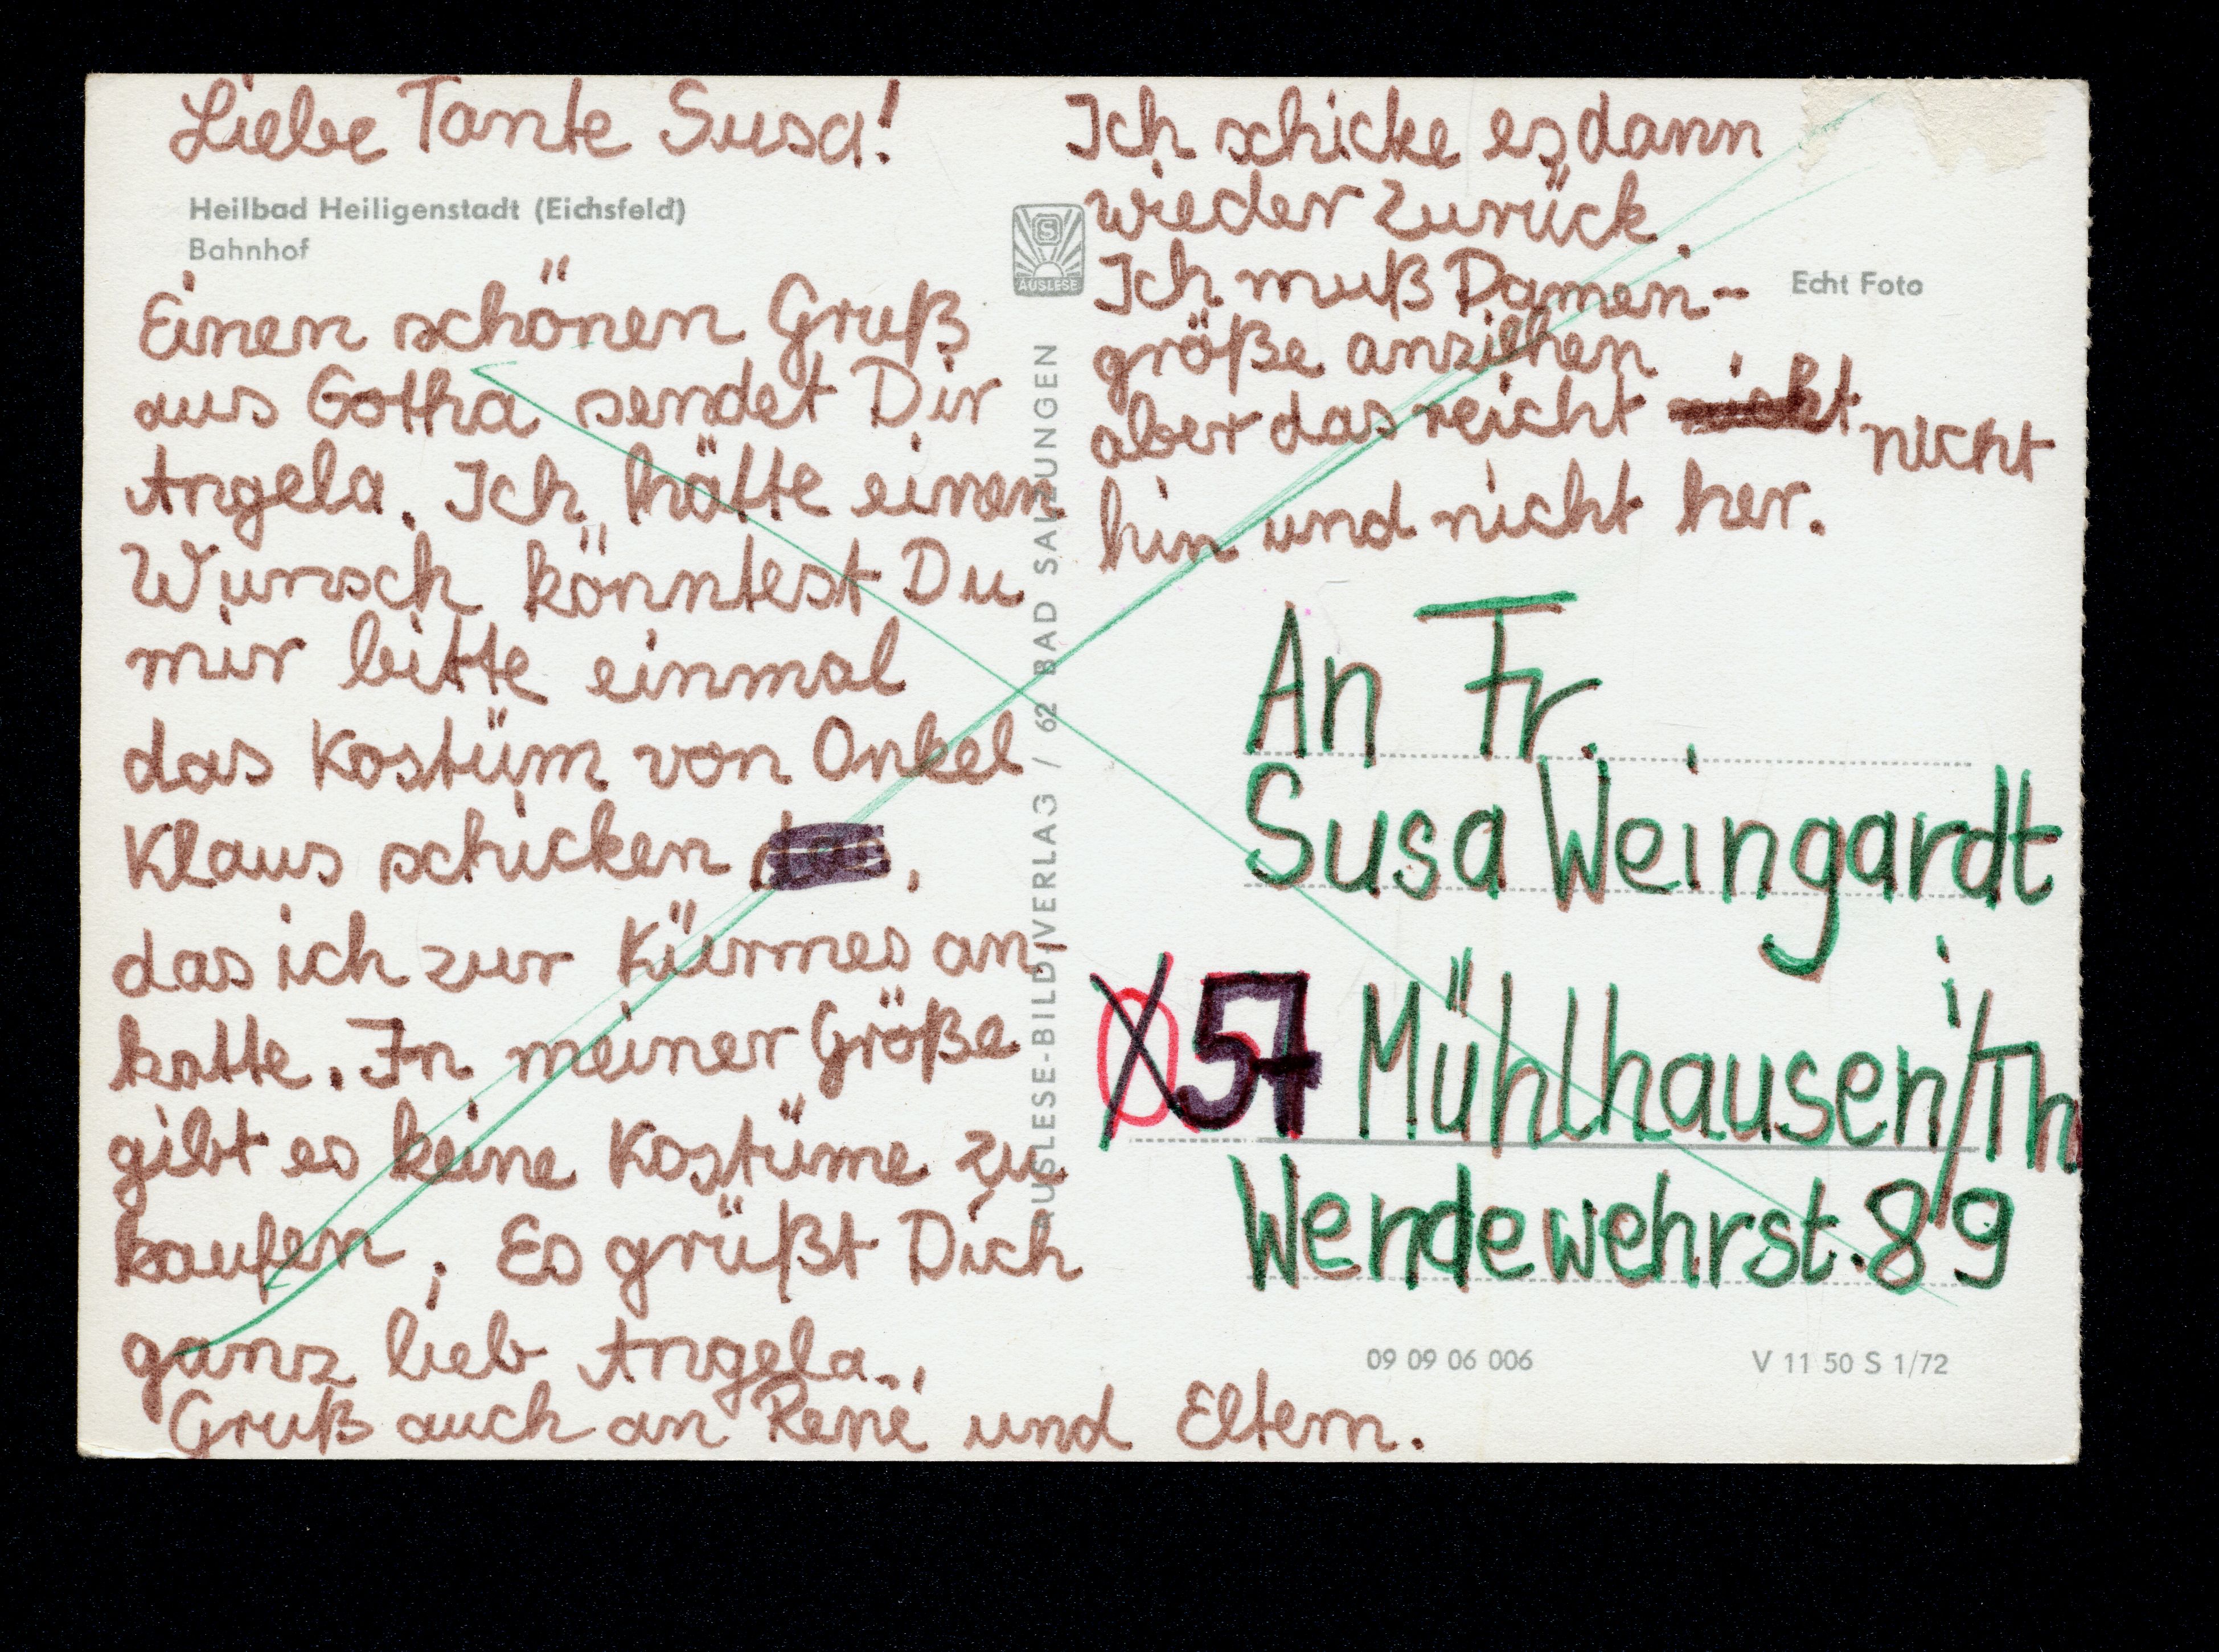 Liebe Tante Susa!
Heilbad Heiligenstadt (Eichsfeld)
Bahnhof
Einen schönen Gruß
aus Gotha sendet Dir
Angela. Ich hätte einen
Wunsch könntest Du
mir bitte einmal
das Kostüm von Onkel
Klaus schicken ,
das ich zur Kürmes an-
hatte. In meiner Größe
gibt es keine Kostüme zu
kaufen, Es grüßt Dich
ganz lieb Angela.
Gruß auch an René und Eltern.
AUSLESE
AUSLESE-BILD-VERLAG / 62 BAD SALZUNGEN
Ich schicke es dann
wieder zurück.
Ich muß Damen-
größe anziehen
aber das reicht nicht nicht
hin und nicht her.
Echt Foto
An Fr.
Susa Weingardt
X 57 Mühlhausen i/Th
Wendewehrst. 89
09 09 06 006
V 11 50 S 1/72